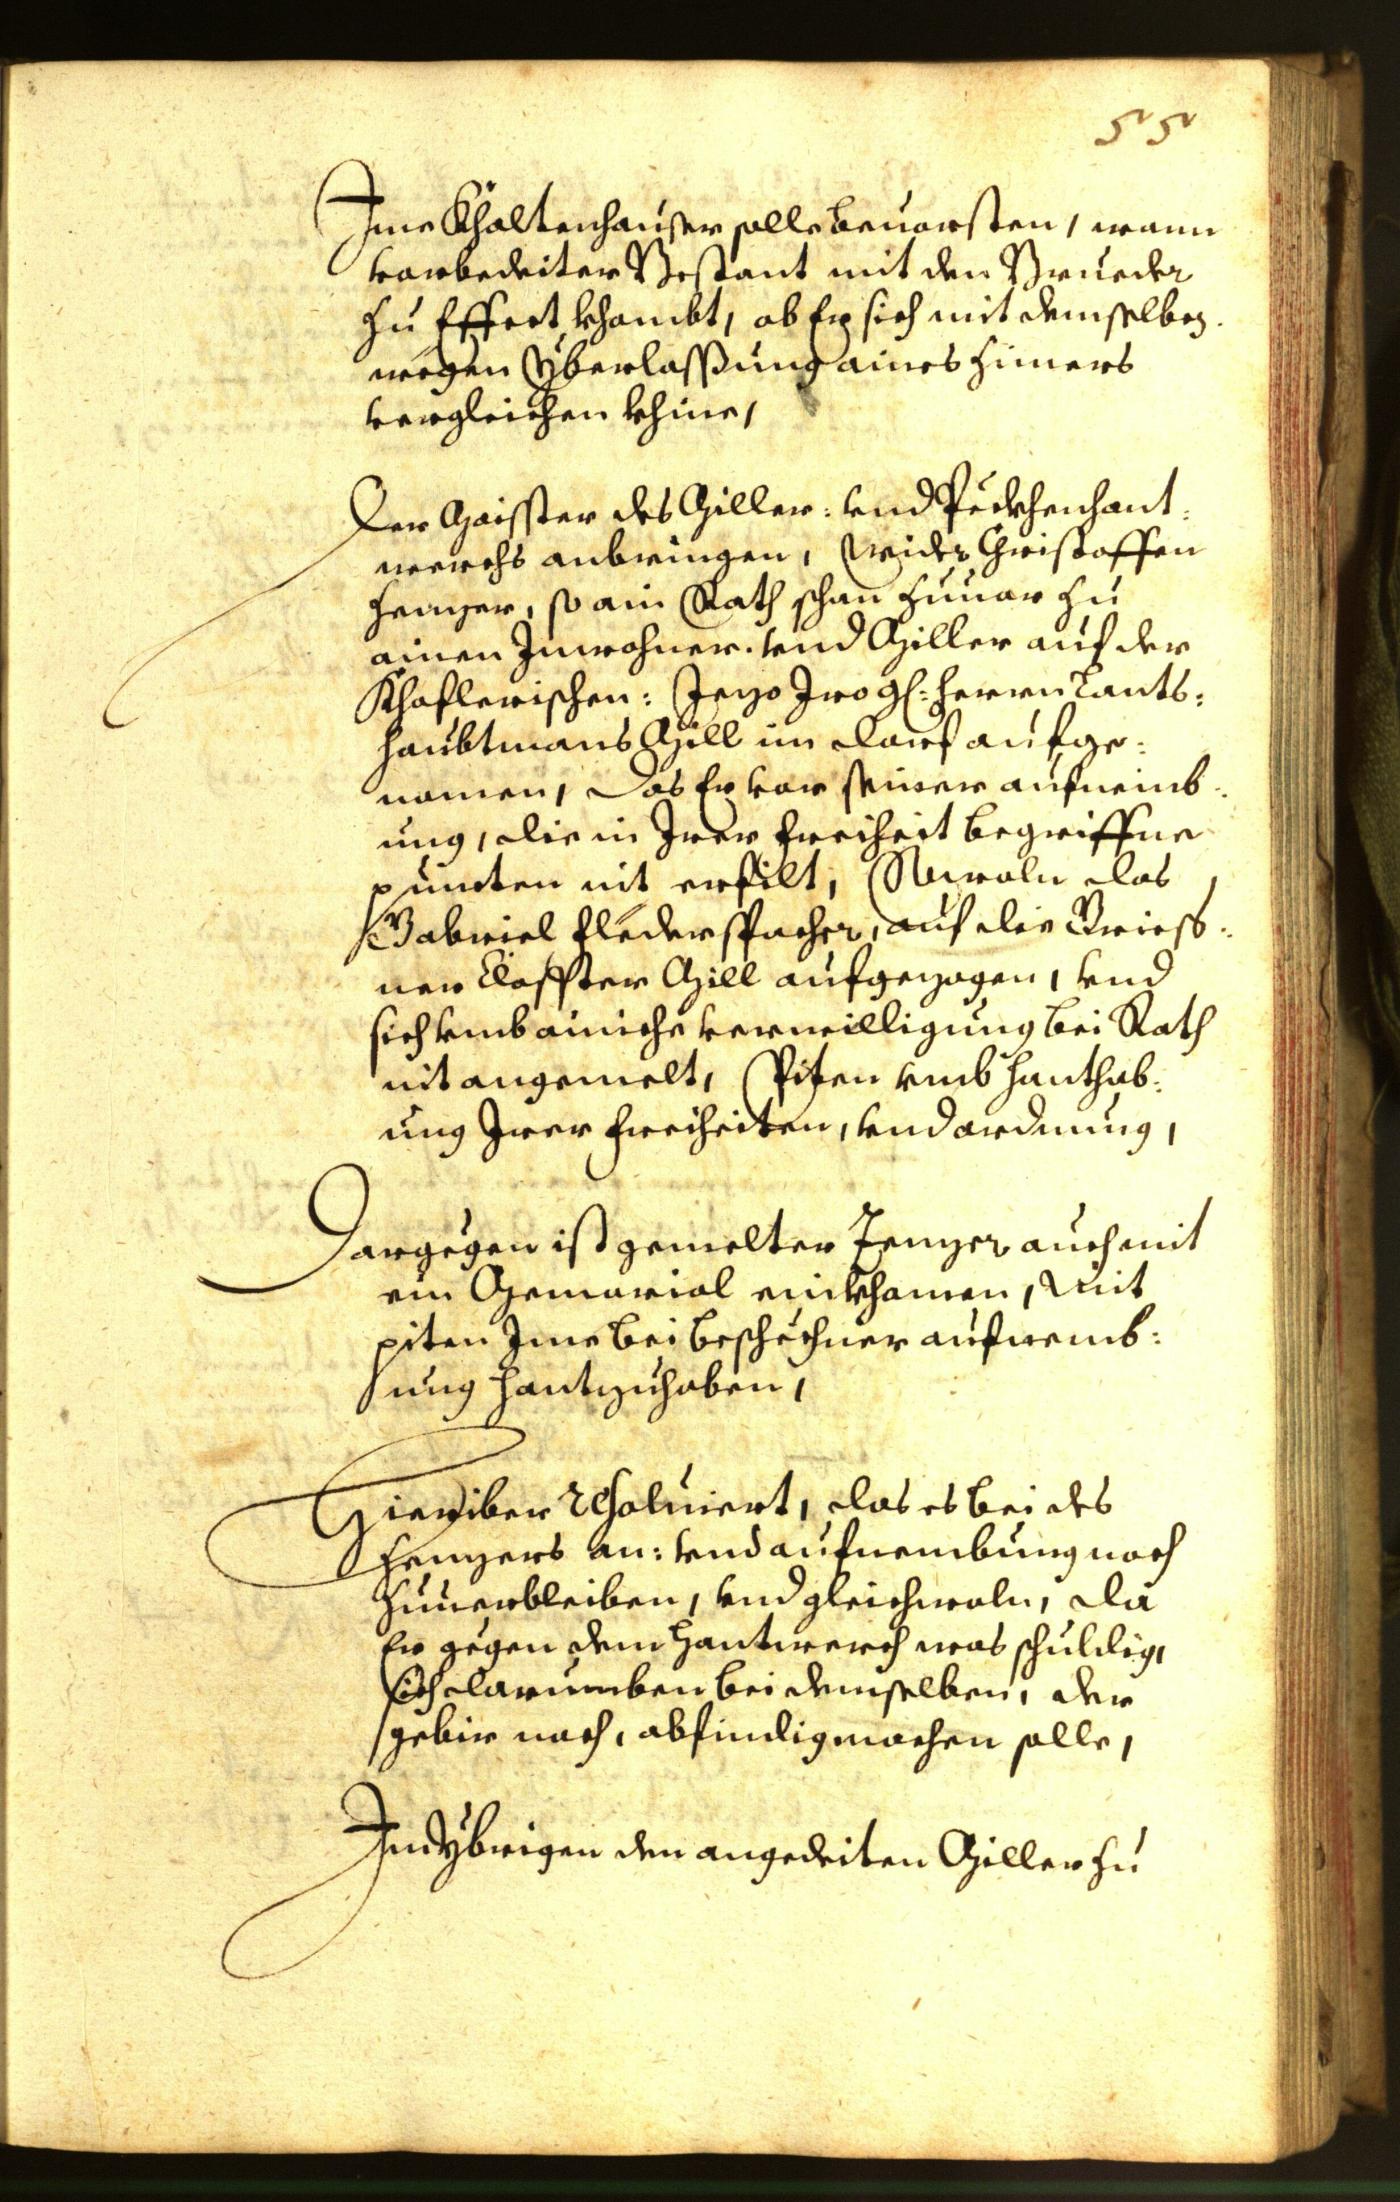 55
Ime Khaltenhauser solle beuorsten, wann
vorbedeiter Bestant mit den Brueder
zu Effect khombt, ob Er sich mit demselben
wegen Yberlassung aines Zimers
vergleichen khine,
Der Maisster des Miller: vnd Peckhenhant:
werchs anbringen, Wider Christoffen
Zenzer, so ain Rath schon zuuor zu
ainen Inwohner. vnd Miller auf der
Khoflerischen: Jezo Iro gl: Herrn Lants:
haubtmans Mill im Dorf aufge:
nomen, Das Er vor seiner aufnemb:
ung, die in Irer Freiheit begriffne
puncten nit erfilt, Sowoln das
Gabriel Flederspacher, auf die Briess:
ner Closster Mill aufgezogen, vnd
sich vmb ainiche verwilligung bei Rath
nit angemelt, Piten vmb Hanthab:
ung Irer Freiheiten, vnd ordnung,
Dargegen ist gemelter Zenzer auch mit
ein Memorial einkhomen, Mit
piten Ime bei beschechner aufnemb:
ung hantzuhaben,
Hieriber resoluiert, das es bei des
Zenzers an: vnd aufnembung noch
zuuerbleiben, vnd gleichwoln, Da
Er gegen dem Hantwerch was schuldig,
sich darumben bei demselben, der
gebir nach, abfindig machen solle,
In Ybrigen den angedeiten Miller zu